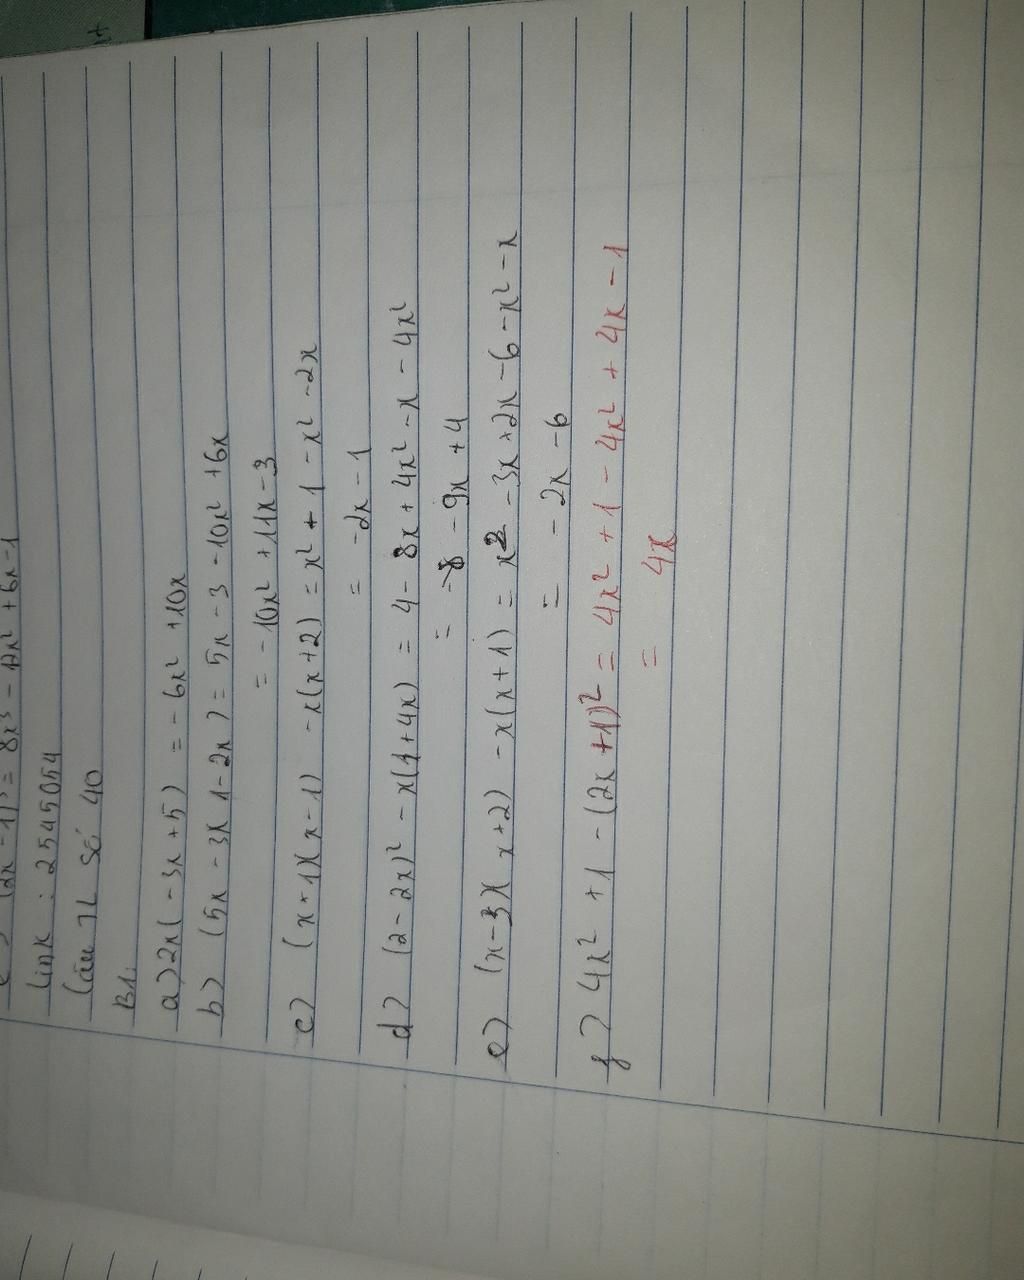 (2x - 1)³ = 8x³ - 12x² + 6x - 1
link : 2545054
Câu TL số 40
B1:
a) 2x( - 3x + 5) = - 6x² + 10x
b) (5x - 3)( 1 - 2x ) = 5x - 3 - 10x² + 6x
= - 10x² + 11x - 3
c) (x - 1)(x - 1) - x(x + 2) = x² + 1 - x² - 2x
= -2x - 1
d) (2 - 2x)² - x(1 + 4x) = 4 - 8x + 4x² - x - 4x²
= - 9x + 4
e) (x - 3)( x + 2) - x(x + 1) = x² - 3x + 2x - 6 - x² - x
= - 2x - 6
f) 4x² + 1 - (2x + 1)² = 4x² + 1 - 4x² + 4x - 1
= 4x